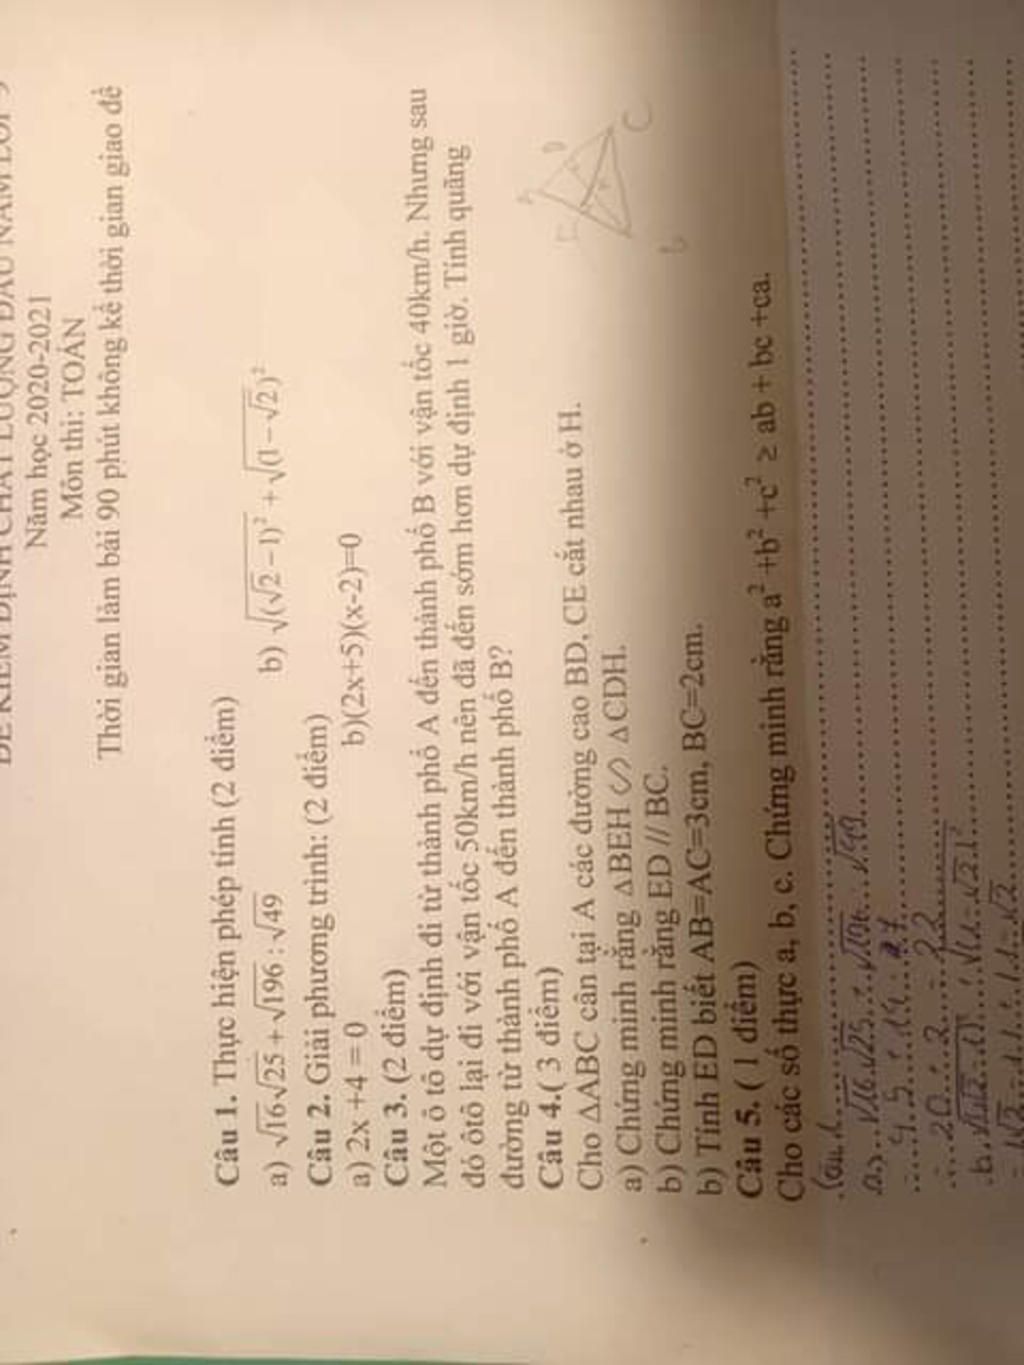 ĐỀ KIỂM ĐỊNH CHẤT LƯỢNG ĐẦU NĂM
Năm học 2020-2021
Môn thi: TOÁN
Thời gian làm bài 90 phút không kể thời gian giao đề
Câu 1. Thực hiện phép tính (2 điểm)
a) √16√25 + √196 : √49 b) √(√2 − 1)² + √(1 − √2)²
Câu 2. Giải phương trình: (2 điểm)
a) 2x +4 = 0 b)(2x+5)(x-2)=0
Câu 3. (2 điểm)
Một ô tô dự định đi từ thành phố A đến thành phố B với vận tốc 40km/h. Nhưng sau
đó ôtô lại đi với vận tốc 50km/h nên đã đến sớm hơn dự định 1 giờ. Tính quãng
đường từ thành phố A đến thành phố B?
Câu 4.( 3 điểm)
Cho ΔABC cân tại A các đường cao BD, CE cắt nhau ở H.
a) Chứng minh rằng ΔBEH ∽ ΔCDH.
b) Chứng minh rằng ED // BC.
b) Tính ED biết AB=AC=3cm, BC=2cm.
Câu 5. ( 1 điểm)
Cho các số thực a, b, c. Chứng minh rằng a² +b² +c² ≥ ab + bc +ca.
Câu 1
a) √16.√25 + √196 : √49